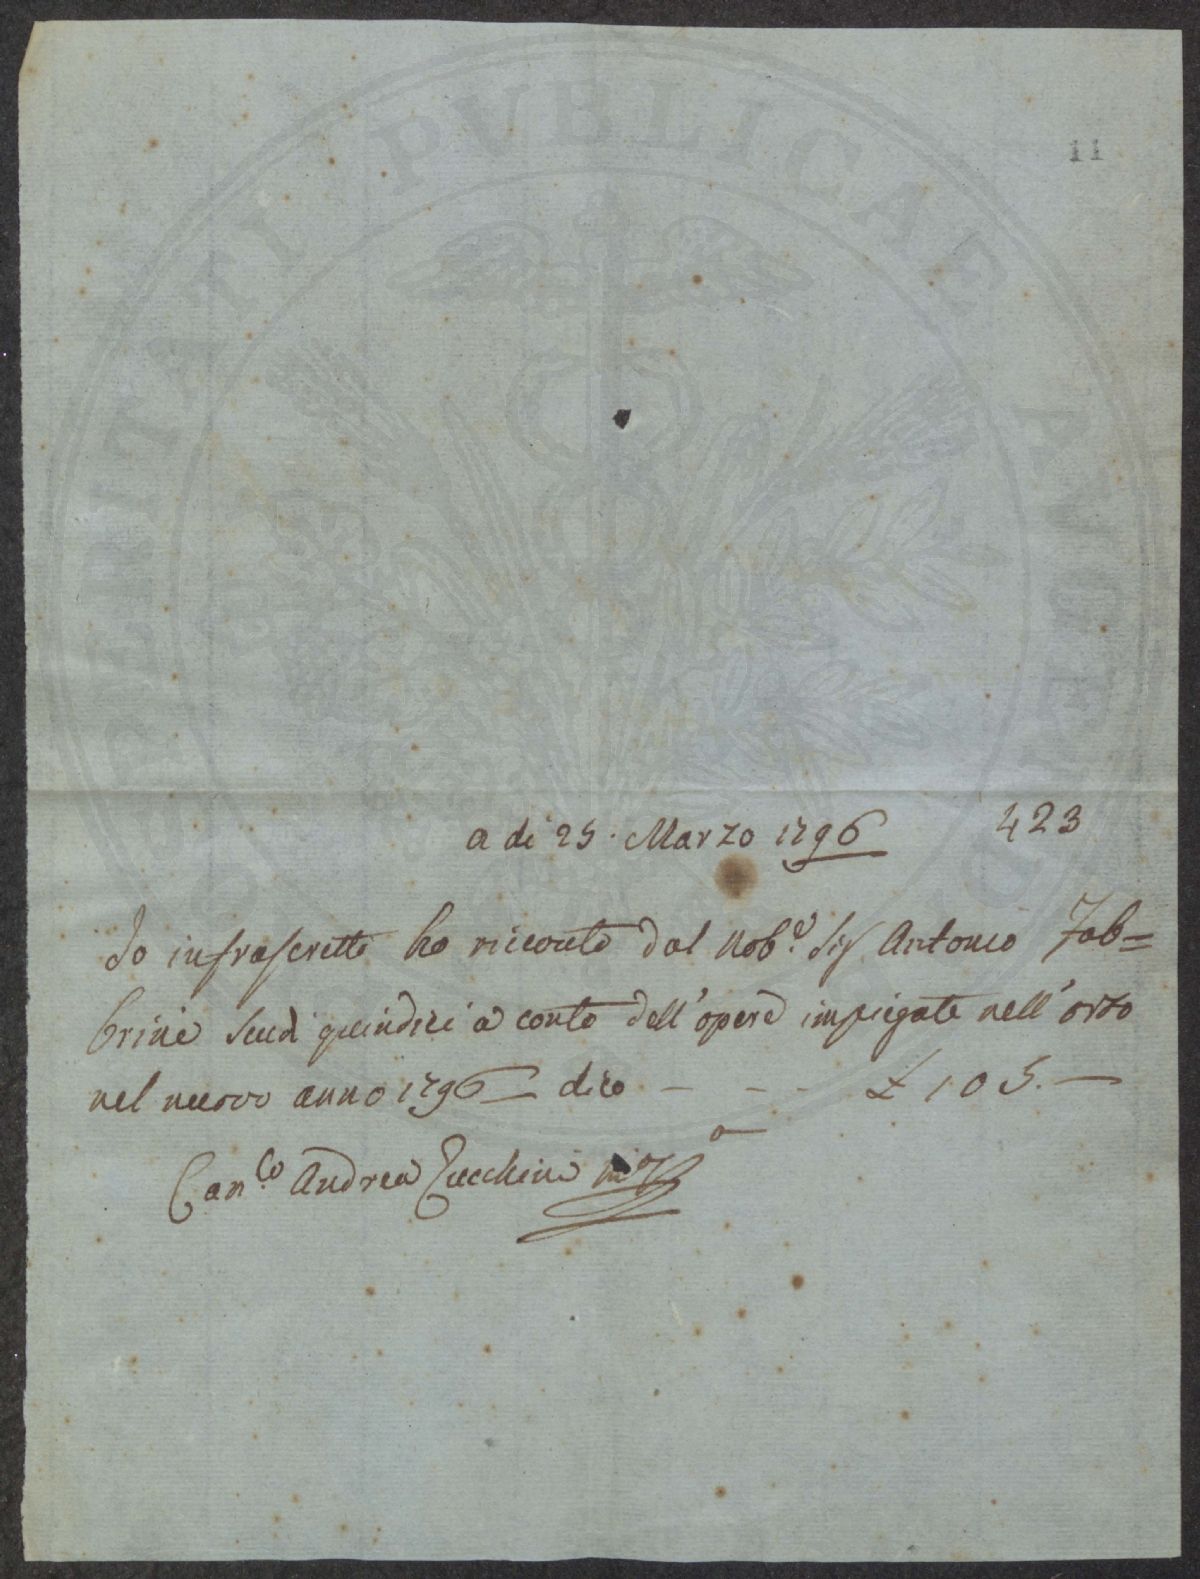 11
PROSPERITATI PVBLICAE AVGENDAE
a di 25. Marzo 1796
423
Io infrascritto ho riceuto dal Nob.e Sig Antonio Fab=
brini Scudi quindici a conto dell'opere impiegate nell'orto
nel nuovo anno 1796 dico - - - £ 105.—
Can.co Andrea Zucchini